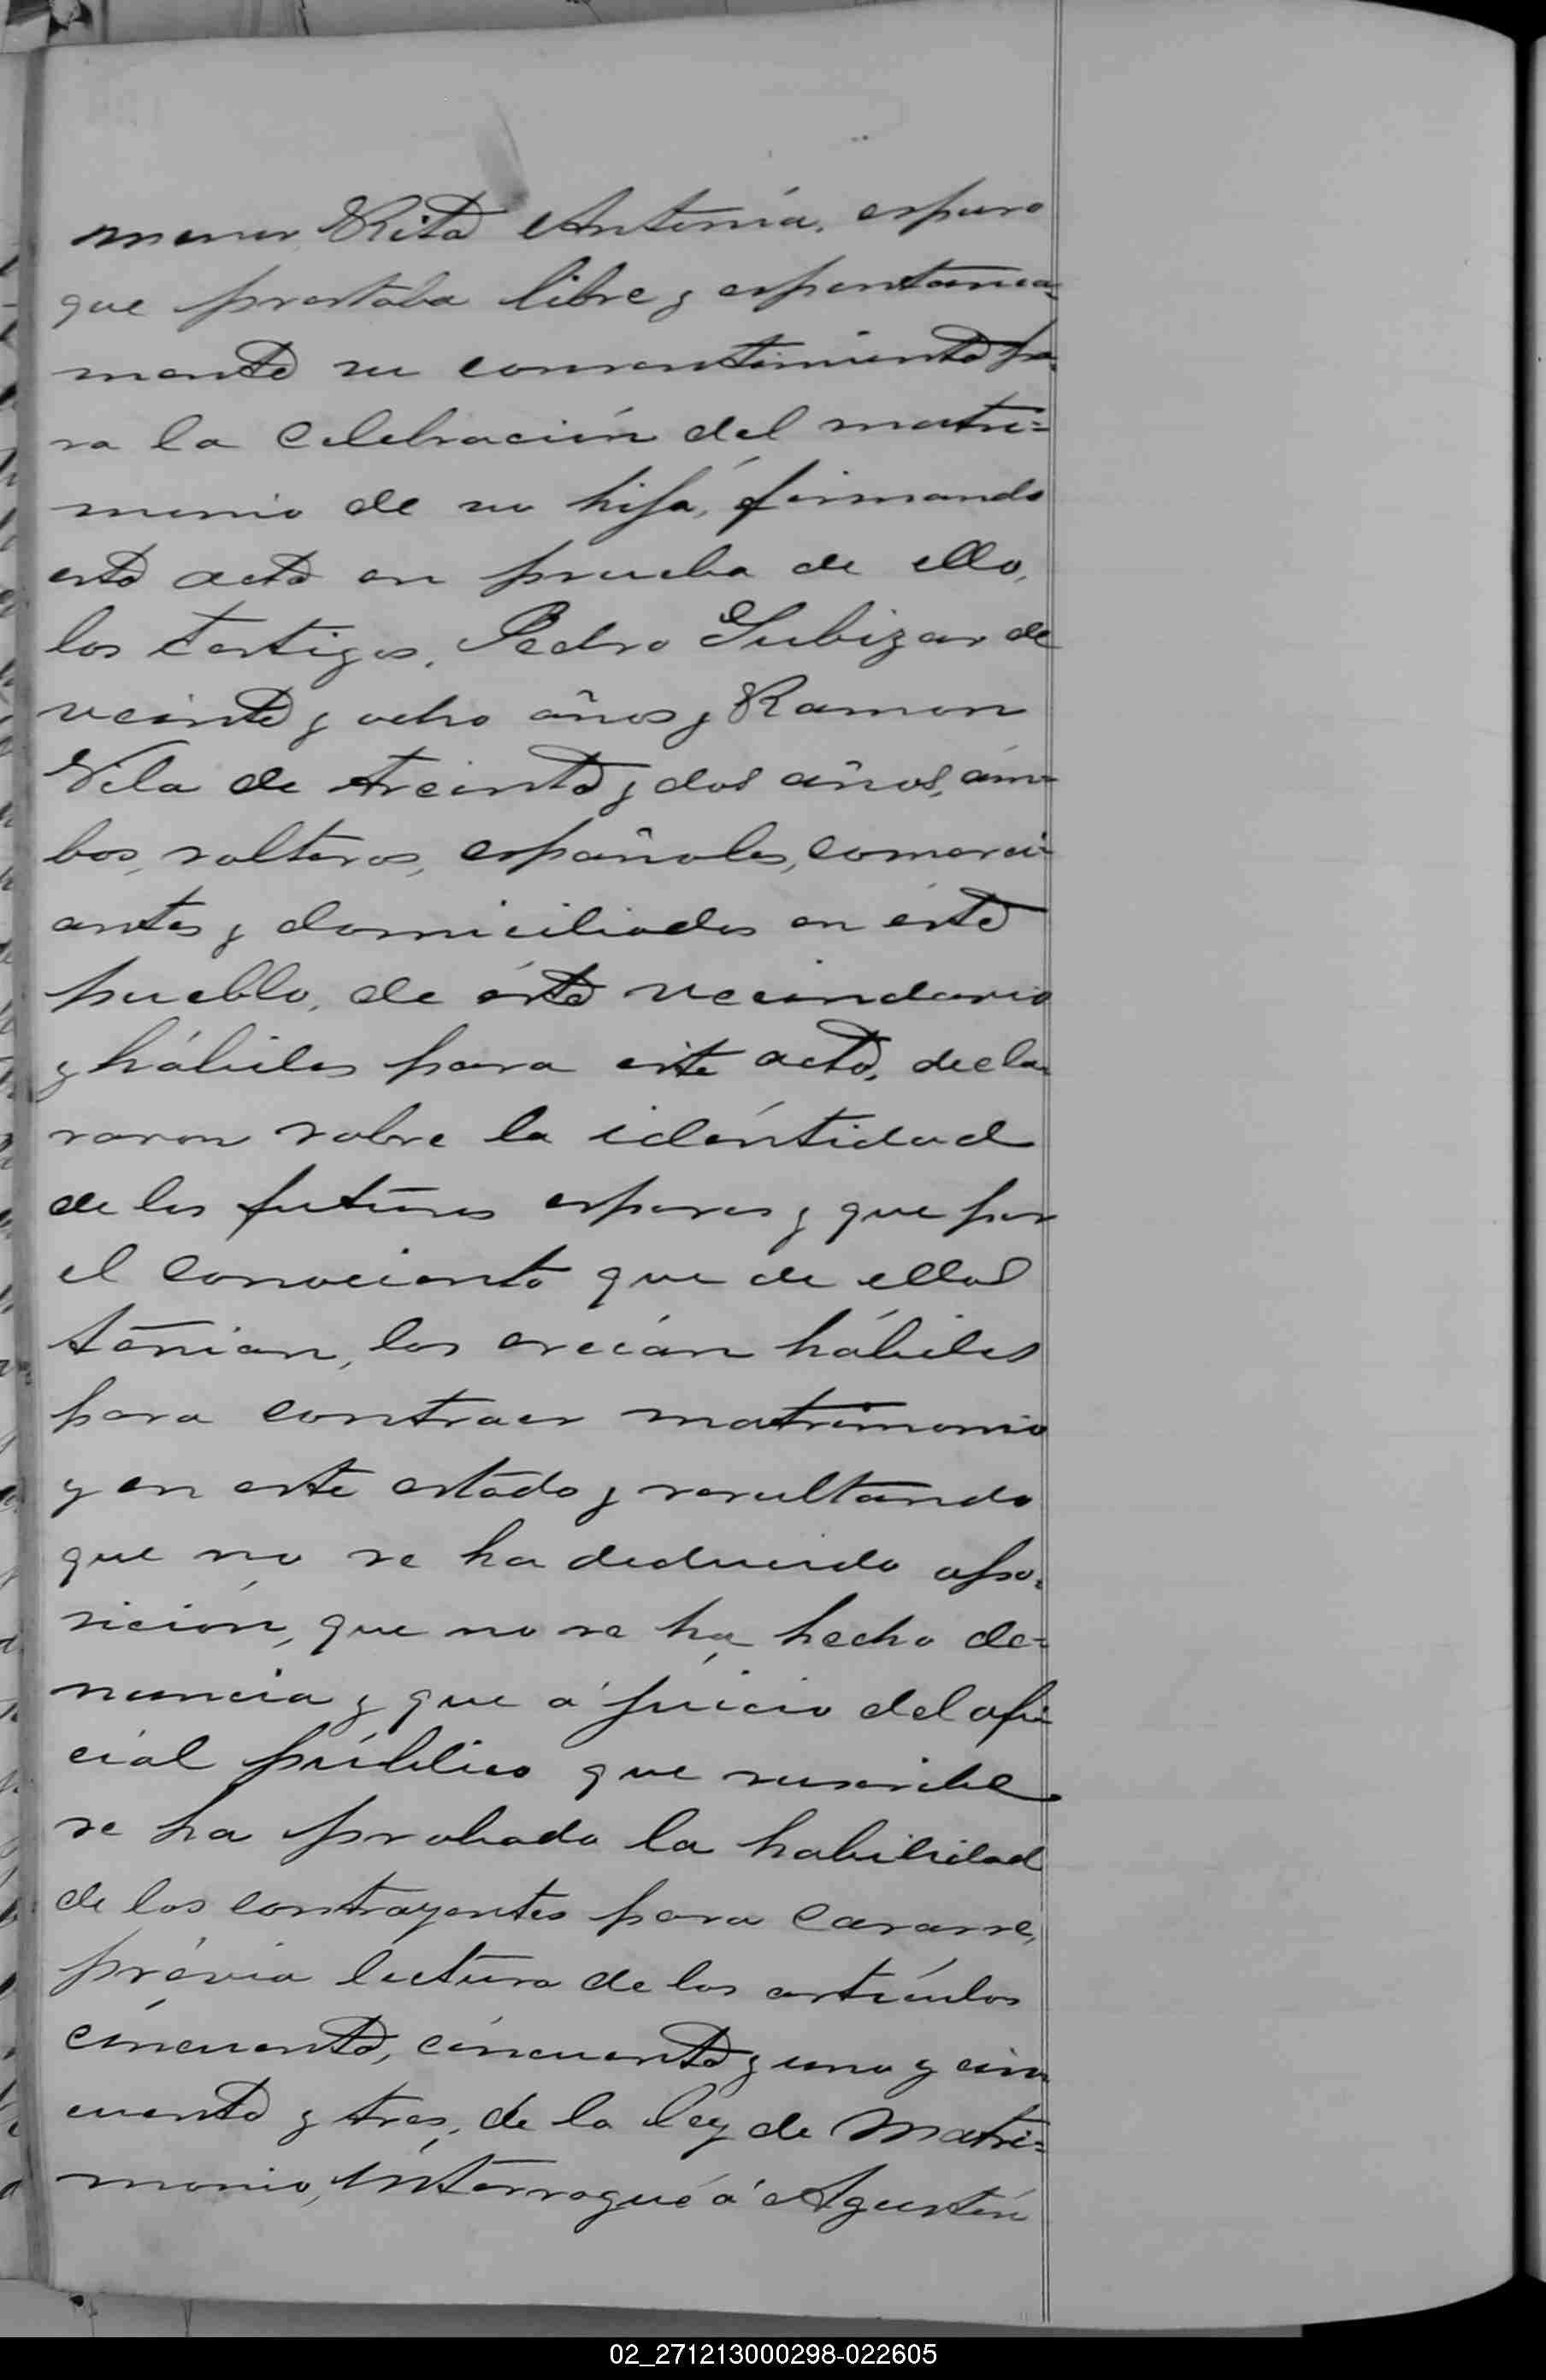 menor Rita Antonía, espuso
que prestaba libre y espontanea=
mente su consentimiento pa=
ra la celebración del matri=
monio de su hija, firmando
esta acta en prueba de ello,
los testigos, Pedro Subizar de
veinte y ocho años y Ramon
Vila de treinta y dos años, ám-
bos, solteros, españoles, comerci-
antes y domiciliados en éste
pueblo, de éste vecindario
y hábiles para este acto, decla-
raron sobre la idéntidad
de los futuros esposos y que por
el conocianto que de ellos
tenian, los creían hábiles
para contraer matrimonio
y en este estado y resultando
que no se ha deducido opo=
sición, que no se ha hecho de=
nuncia y que á juicio del ofi
cial público que suscribe
se ha probado la habilidad
de los contrayentes para casarse,
prévia lectura de los artículos
cincuenta, cincuenta y uno y cin
cuenta y tres, de la ley de Matri=
monio, interrogué á Agustín
02_271213000298-022605